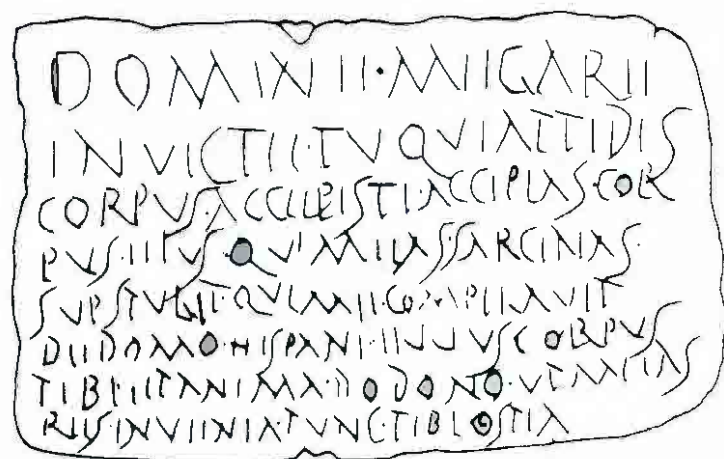 DOMINII·MIIGARII
INVICTII·TVQVIATTIDIS
CORPVS·ACCIIPISTI·ACCIPIAS·COR
PVS·IIIVS·QVIMIIAS·SARCINAS·
SVPSTVLIT·QVIMII·COMPILAVIT
DIIDOMO·HISPANI·IILIVS·CORPVS
TIBI·IITANIMA·DODONO·VTMIIAS
RIIS·INVIINIA·TVNC·TIBI·OSTIA